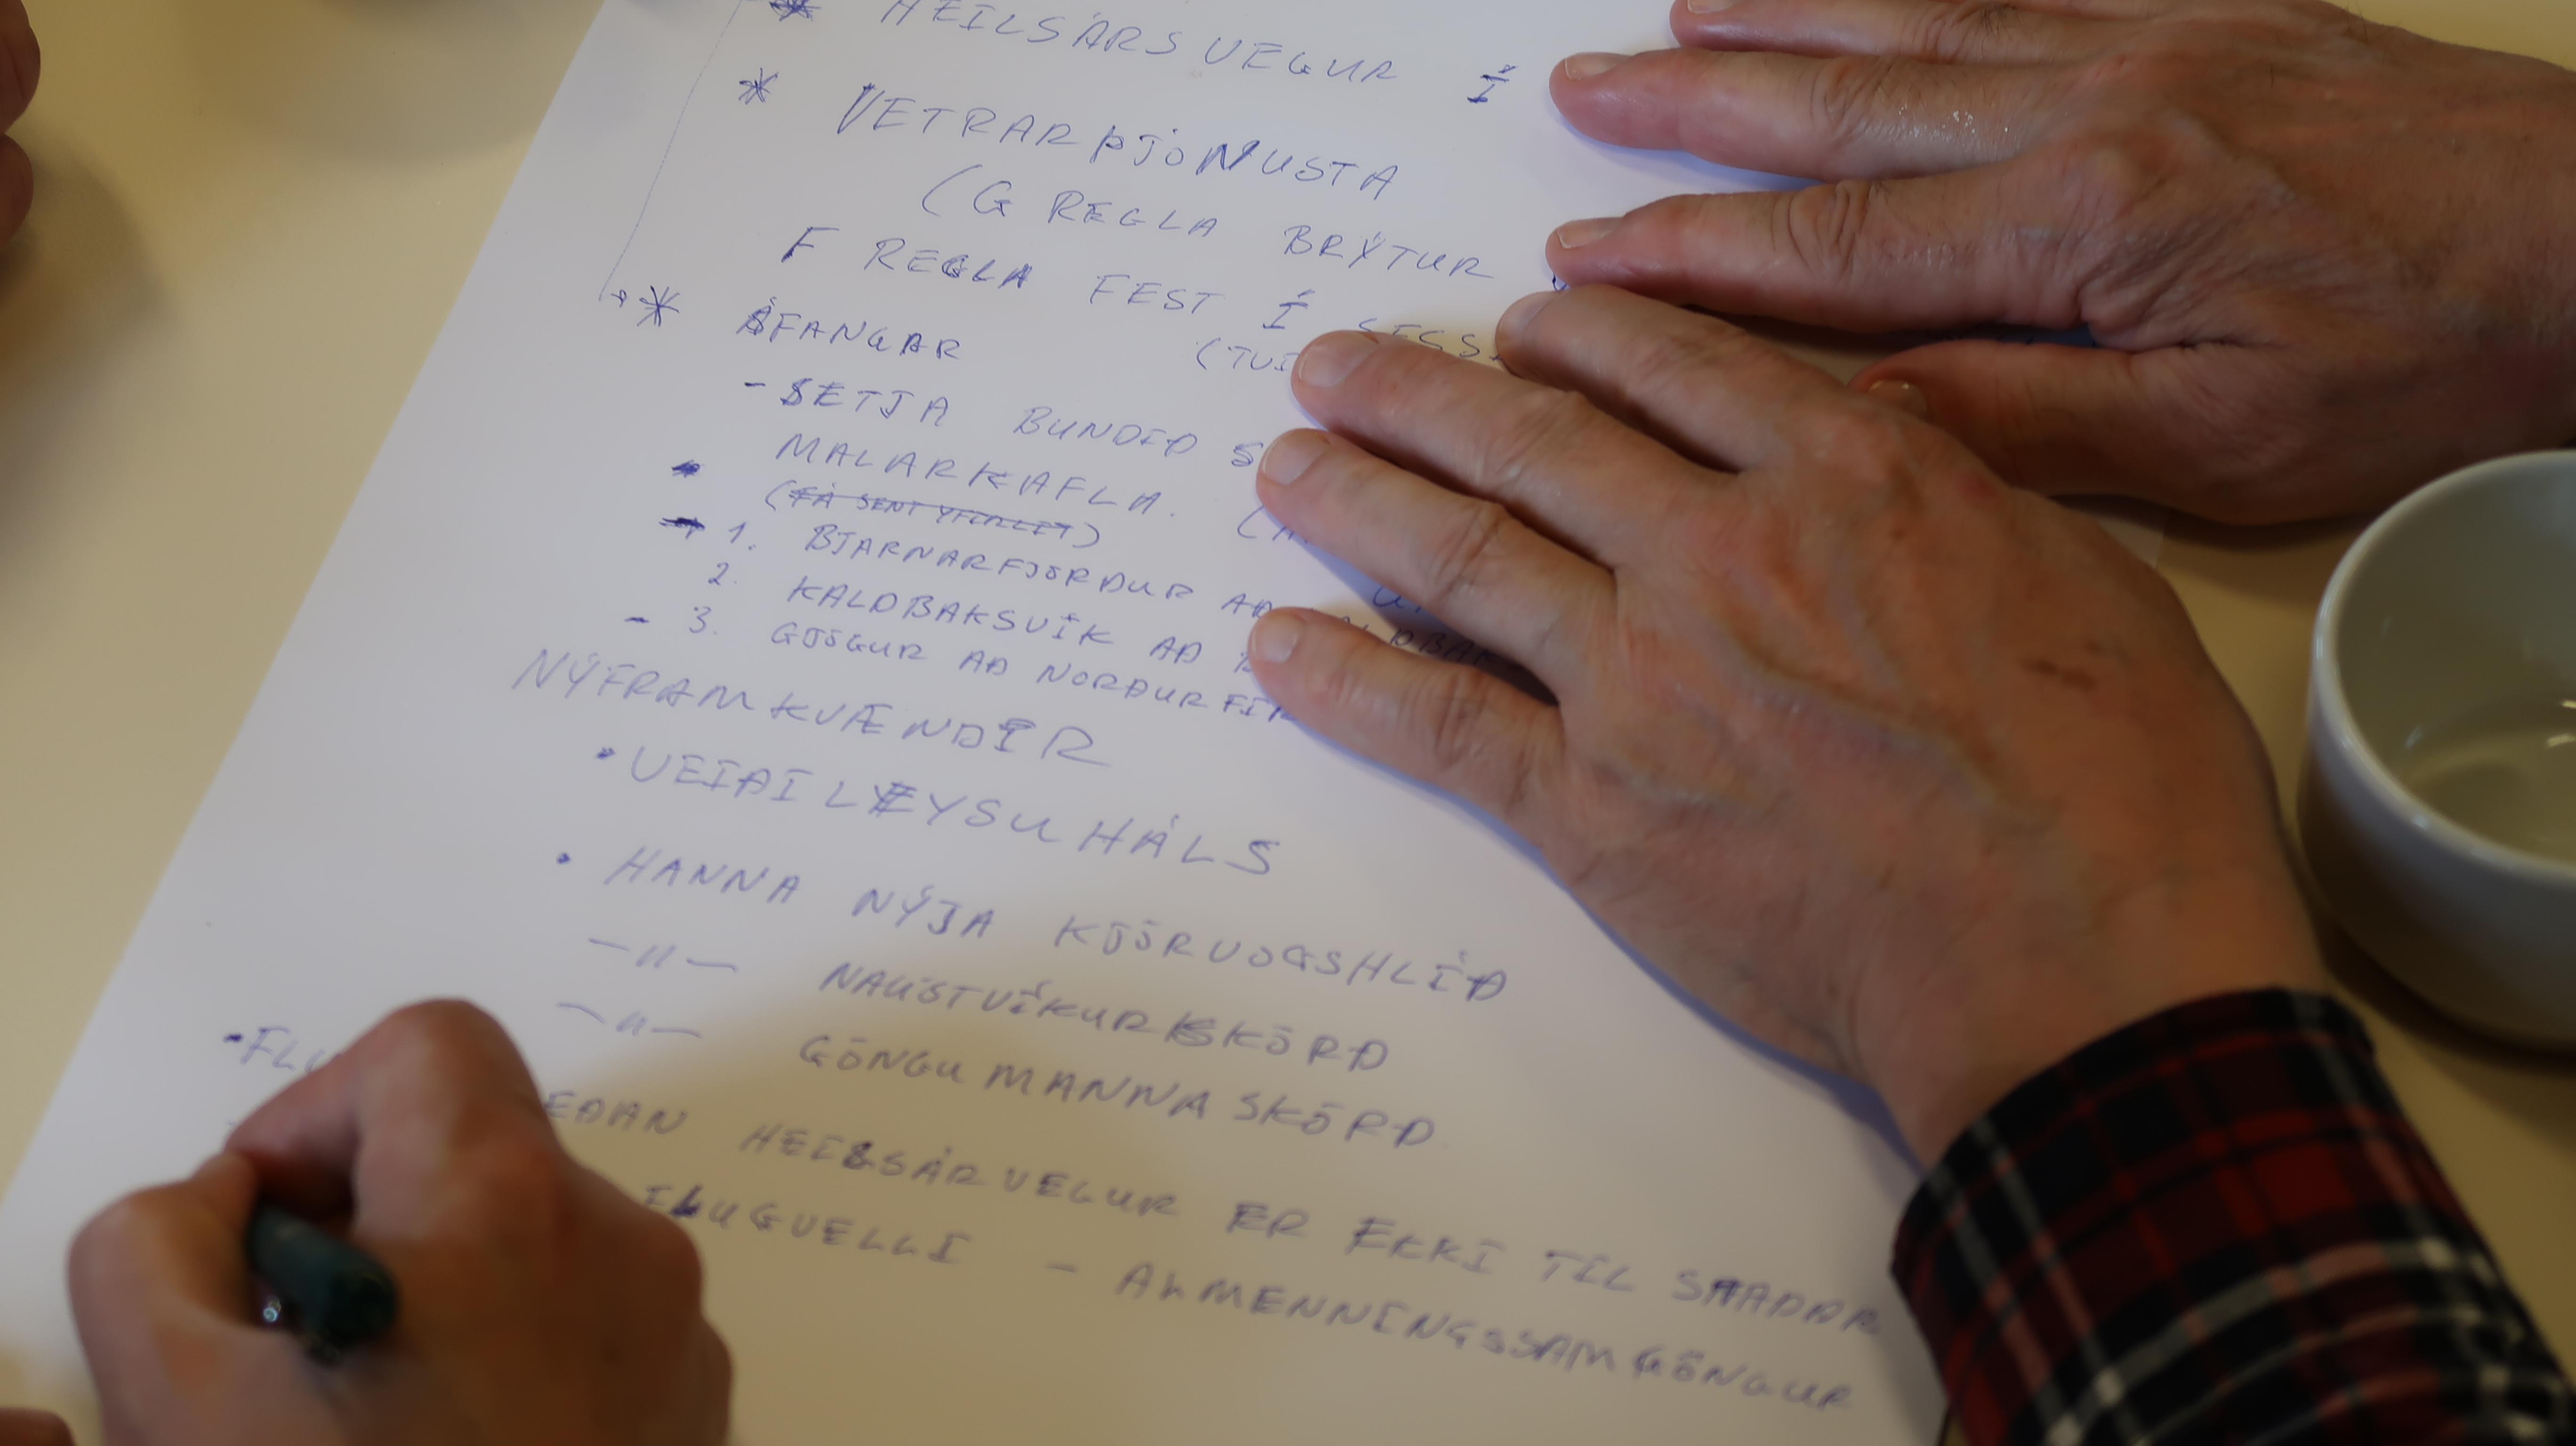 * HEILSÁRSVEGUR Í
* VETRARÞJÓNUSTA
(G REGLA BRÝTUR
F REGLA FEST Í SESS
* ÁFANGAR (TVI
- SETJA BUNDIÐ S
MALARKAFLA. (
(FÁ SENT YFIRLIT)
1. BJARNARFJÖRÐUR AÐ KALDBAK
2. KALDBAKSVÍK AÐ
- 3. GJÖGUR AÐ NORÐURFIR
NÝFRAMKVÆMDIR
• VEIÐILEYSUHÁLS
• HANNA NÝJA KJÖRVOGSHLÍÐ
—〃— NAUSTVÍKURSKÖRÐ
—〃— GÖNGUMANNASKÖRÐ
- FLU EÐAN HEILSÁRVEGUR ER EKKI TIL STAÐAR
FLUGVELLI - ALMENNINGSSAMGÖNGUR